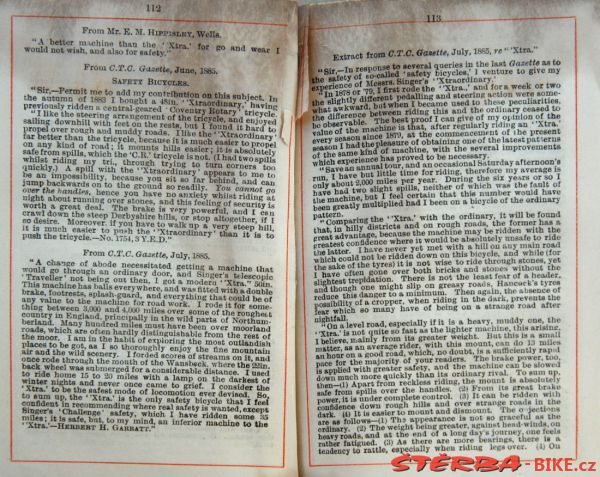 112
From Mr. E. M. HIPPISLEY, Wells.
"A better machine than the 'Xtra.' for go and wear I
would not wish, and also for safety."
From C.T.C. Gazette, June, 1885.
SAFETY BICYCLES.
"Sir,—Permit me to add my contribution on this subject. In
the autumn of 1883 I bought a 48in. 'Xtraordinary,' having
previously ridden a central-geared 'Coventry Rotary' tricycle.
"I like the steering arrangement of the tricycle, and enjoyed
sailing downhill with feet on the rests, but I found it hard to
propel over rough and muddy roads. I like the 'Xtraordinary'
far better than the tricycle, because it is much easier to propel
on any kind of road; it mounts hills easier; it is absolutely
safe from spills, which the 'C.R.' tricycle is not. (I had two spills
whilst riding my tri, through trying to turn corners too
quickly.) A spill with the 'Xtraordinary' appears to me to
be an impossibility, because you sit so far behind, and can
jump backwards on to the ground so readily. You cannot go
over the handles, hence you have no anxiety whilst riding at
night about running over stones, and this feeling of security is
worth a great deal. The brake is very powerful, and I can
crawl down the steep Derbyshire hills, or stop altogether, if I
so desire. Moreover, if you have to walk up a very steep hill,
it is much easier to push the 'Xtraordinary' than it is to
push the tricycle.—No. 1754, 3 Y.E.D."
From C.T.C. Gazette, July, 1885.
"A change of abode necessitated getting a machine that
would go through an ordinary door, and Singer's telescopic
'Traveller' not being out then, I got a modern 'Xtra.' 50in.
This machine has balls everywhere, and was fitted with a double
brake, footrests, splash-guard, and everything that could be of
any value to the machine for road work. I rode it for some-
thing between 3,000 and 4,000 miles over some of the roughest
country in England, principally in the wild parts of Northum-
berland. Many hundred miles must have been over moorland
roads, which are often hardly distinguishable from the rest of
the moor. I am in the habit of exploring the most outlandish
places to be got, as I so thoroughly enjoy the fine mountain
air and the wild scenery. I forded scores of streams on it, and
once rode through the mouth of the Wansbeck, where the 22in.
back wheel was submerged for a considerable distance. I used
to ride home 15 to 20 miles with a lamp on the darkest of
winter nights and never once came to grief. I consider the
'Xtra.' to be the safest mode of locomotion ever devised. So,
to sum up, the 'Xtra.' is the only safety bicycle that I feel
confident in recommending where real safety is wanted, except
Singer's 'Challenge' safety, which I have ridden some 35
miles; it is safe, but, to my mind, an inferior machine to the
'Xtra.'—HERBERT H. GARRATT."
113
Extract from C.T.C. Gazette, July, 1885, re "'Xtra."
"Sir,—In response to several queries in the last Gazette as to
the safety of so-called 'safety bicycles,' I venture to give my
experience of Messrs. Singer's 'Xtraordinary.'
"In 1878 or '79, I first rode the 'Xtra.,' and for a week or two
the slightly different pedalling and steering action were some-
what awkward, but when I became used to these peculiarities,
the difference between riding this and the ordinary ceased to
be observable. The best proof I can give of my opinion of the
value of the machine is that, after regularly riding an 'Xtra.'
every season since 1879, at the commencement of the present
season I had the pleasure of obtaining one of the latest patterns
of the same kind of machine, with the several improvements
which experience has proved to be necessary.
"Save an annual tour, and an occasional Saturday afternoon's
run, I have but little time for riding, therefore my average is
only about 2,000 miles per year. During the six years or so I
have had two slight spills, neither of which was the fault of
the machine, but I feel certain that this number would have
been greatly multiplied had I been on a bicycle of the ordinary
pattern.
"Comparing the 'Xtra.' with the ordinary, it will be found
that, in hilly districts and on rough roads, the former has a
great advantage, because the machine may be ridden with the
greatest confidence where it would be absolutely unsafe to ride
the latter. I have never yet met with a hill on any main road
which could not be ridden down on this bicycle, and while (for
the sake of the tyres) it is not wise to ride through stones, yet
I have often gone over both bricks and stones without the
slightest trepidation. There is not the least fear of a header,
and though one might slip on greasy roads, Hancock's tyres
reduce this danger to a minimum. Then again, the absence of
possibility of a cropper, when riding in the dark, prevents the
fear which so many have of being on a strange road after
nightfall.
"On a level road, especially if it is a heavy, muddy one, the
'Xtra.' is not quite so fast as the lighter machine, this arising,
I believe, mainly from its greater weight. But this is a small
matter, as an average rider, with this mount, can do 13 miles
an hour on a good road, which, no doubt, is a sufficiently rapid
pace for the majority of your readers. The brake power, too,
is applied with greater safety, and the machine can be slowed
down much more quickly than its ordinary rival. To sum up,
then—(1) Apart from reckless riding, the mount is absolutely
safe from spills over the handles. (2) From its great brake
power, it is under complete control. (3) It can be ridden with
confidence down rough hills and over strange roads in the
dark. (4) It is easier to mount and dismount. The objections
are as follows—(1) The appearance is not so graceful as the
ordinary. (2) The weight being greater, against head-winds, on
heavy roads, and at the end of a long day's journey, one feels
rather fatigued. (3) As there are more bearings, there is a
tendency to rattle, especially when riding legs over. (4) On
ŠTĚRBA-BIKE.cz